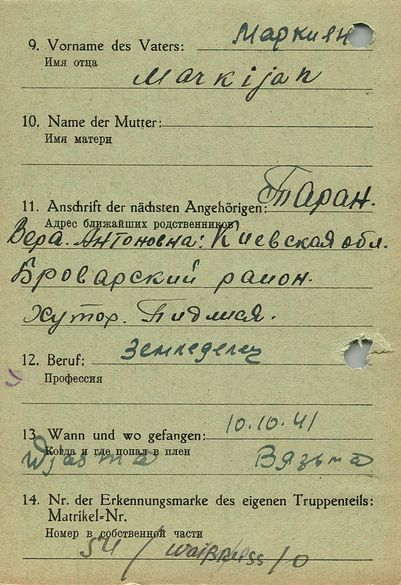 9. Vorname des Vaters: Маркиян
Имя отца
Markijan
10. Name der Mutter:
Имя матери
11. Anschrift der nächsten Angehörigen: Таран.
Адрес ближайших родственников
Вера. Антоновна: Киевская обл.
Броварский раион.
Хутор. Пидлися.
12. Beruf: Земледелец
Профессия
13. Wann und wo gefangen: 10.10.41
Когда и где попал в плен
Wjasma Вязьма
14. Nr. der Erkennungsmarke des eigenen Truppenteils:
Matrikel-Nr.
Номер в собственной части